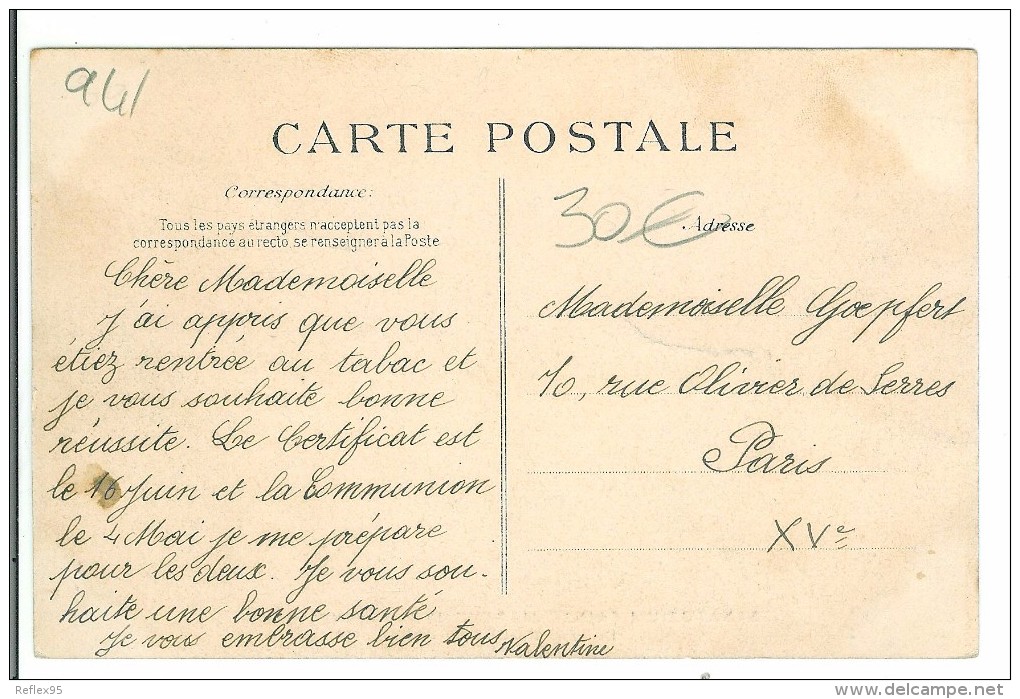 941
CARTE POSTALE
Correspondance:
Tous les pays étrangers n'acceptent pas la
correspondance au recto, se renseigner à la Poste
Chère Mademoiselle
J'ai appris que vous
étiez rentrée au tabac et
je vous souhaite bonne
réussite. Le Certificat est
le 16 Juin et la Communion
le 4 Mai je me prépare
pour les deux. Je vous sou-
haite une bonne santé
Je vous embrasse bien tous
Valentine
30€
Adresse
Mademoiselle Goepfert
70, rue Olivier de Serres
Paris
XVe
Reflex95
delcampe.net